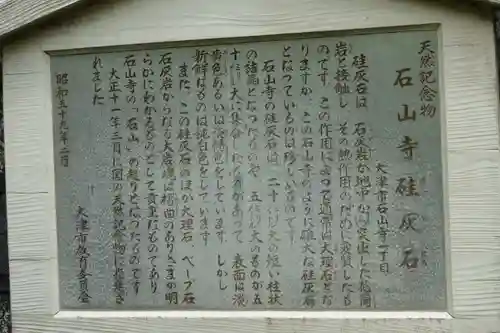 天然記念物
石山寺硅灰石
大津市石山寺一丁目
硅灰石は、石灰岩が地中から突出した花崗
岩と接触し、その熱作用のために変質したも
のです。この作用によって通常は大理石とな
りますが、この石山寺のように雄大な硅灰石
となっているのは珍しいものです。
石山寺の硅灰石は、二十ミリ大の短い柱状
の結晶となったものや、五ミリ大のものが五
十ミリ大に集合したものがあって、表面は淡
黄色あるいは淡褐色をしています。しかし
新鮮なものは純白色をしています。
また、この硅灰石のほか大理石、ベーブ石
石灰岩からなる大岩塊は褶曲のありさまが明
らかにわかるものとして貴重なものであり
石山寺の「石山」の起りとなったものです
大正十一年三月に国の天然記念物に指定さ
れました。
昭和五十九年二月
大津市教育委員会